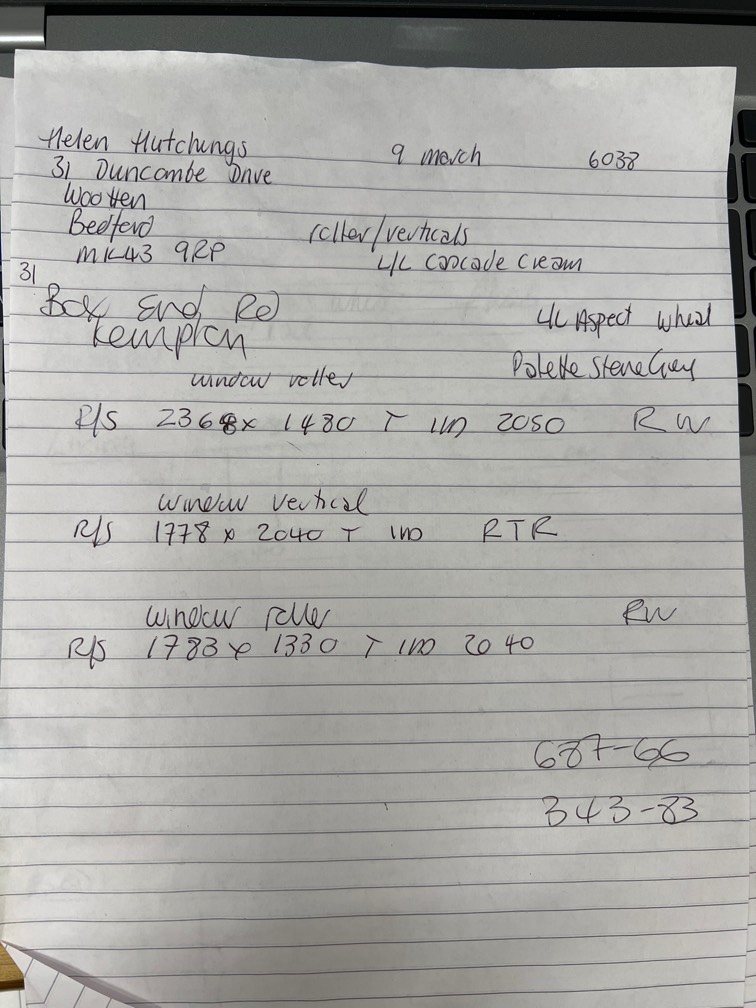 Helen Hutchings 9 march 6038
31 Duncombe Drive
Wootten
Bedford
MK43 9RP
roller/verticals
L/L Cascade Cream
31
Box End Rd
Kempton
L/L Aspect Wheat
Palette Stone Grey
window roller
R/S 2368 x 1480 T IN 2050 RW
window vertical
R/S 1778 x 2040 T IN RTR
window roller RW
R/S 1783 x 1330 T IN 2040
687-66
343-83